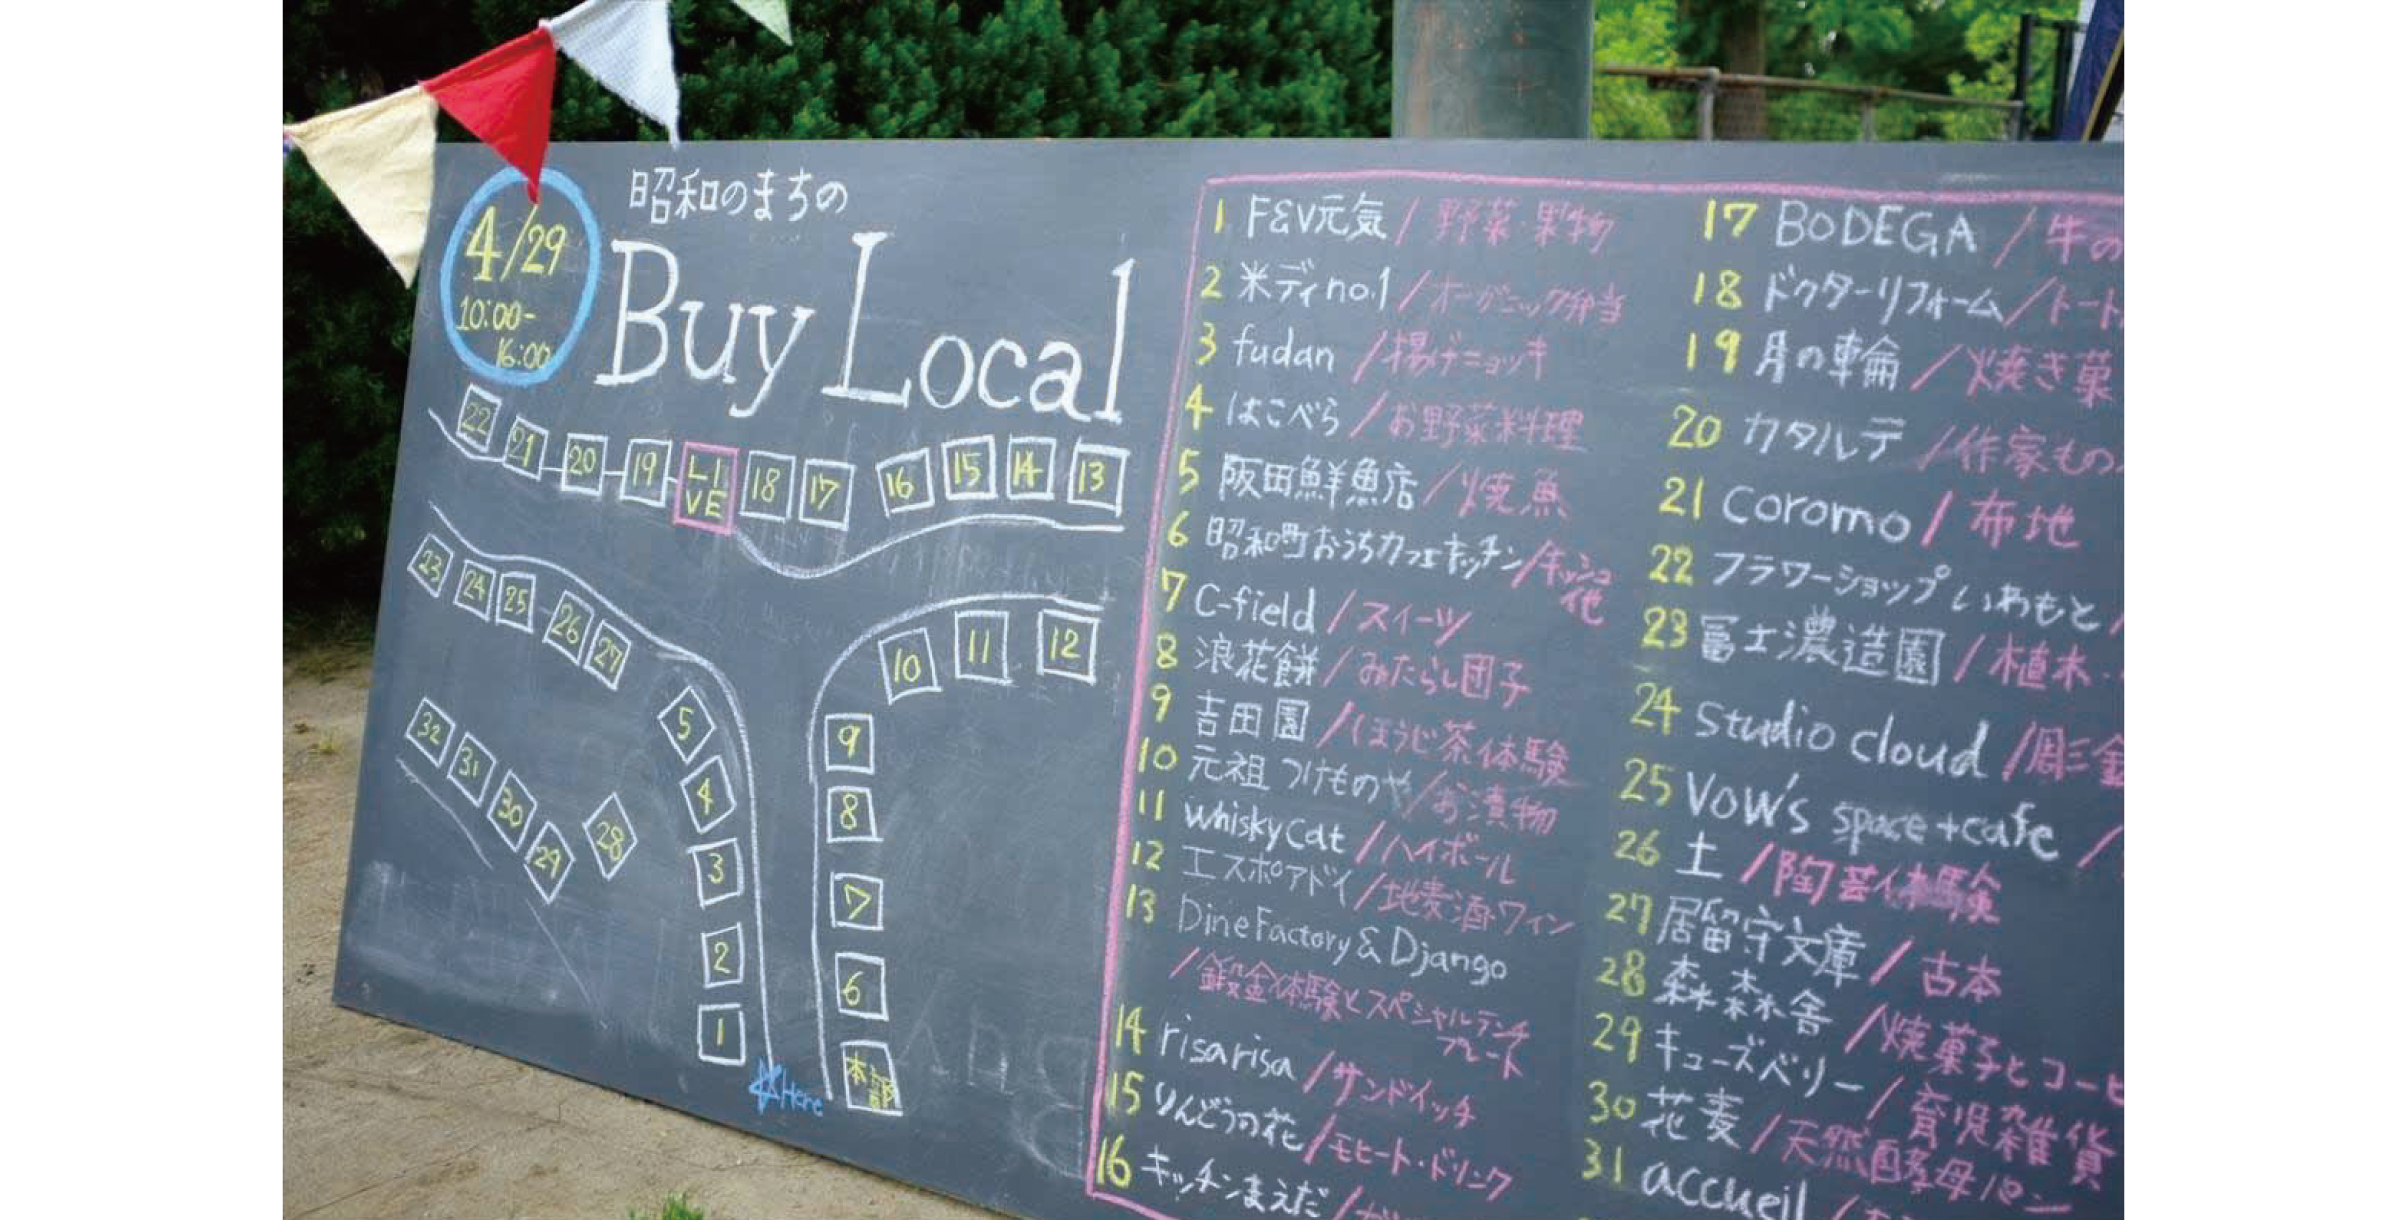 4/29
10:00-
16:00
昭和のまちの
Buy Local
22 21 20 19 LIVE 18 17 16 15 14 13
23 24 25 26 27
10 11 12
32 31 30 29 28
5
4
3
2
1
9
8
7
6
本部
Here
1 F&V元気/野菜・果物
2 米ディno.1/オーガニック弁当
3 fudan/揚げニョッキ
4 はこべら/お野菜料理
5 阪田鮮魚店/焼魚
6 昭和町おうちカフェキッチン/キッシュ他
7 C-field/スイーツ
8 浪花餅/みたらし団子
9 吉田園/ほうじ茶体験
10 元祖つけものや/お漬物
11 whisky cat/ハイボール
12 エスポアドイ/地麦酒・ワイン
13 Dine Factory & Django
/鍛金体験とスペシャルランチプレート
14 risarisa/サンドイッチ
15 りんどうの花/モヒート・ドリンク
16 キッチンまえだ/
17 BODEGA/牛の
18 ドクターリフォーム/トート
19 月の輪/焼き菓
20 カタルテ/作家もの
21 coromo/布地
22 フラワーショップいわもと/
23 冨士濃造園/植木・
24 studio cloud/彫金
25 VOW's space+cafe/
26 土/陶芸体験
27 居留守文庫/古本
28 森森舎/焼菓子とコーヒ
29 キューズベリー/育児雑貨
30 花麦/天然酵母パン
31 accueil/